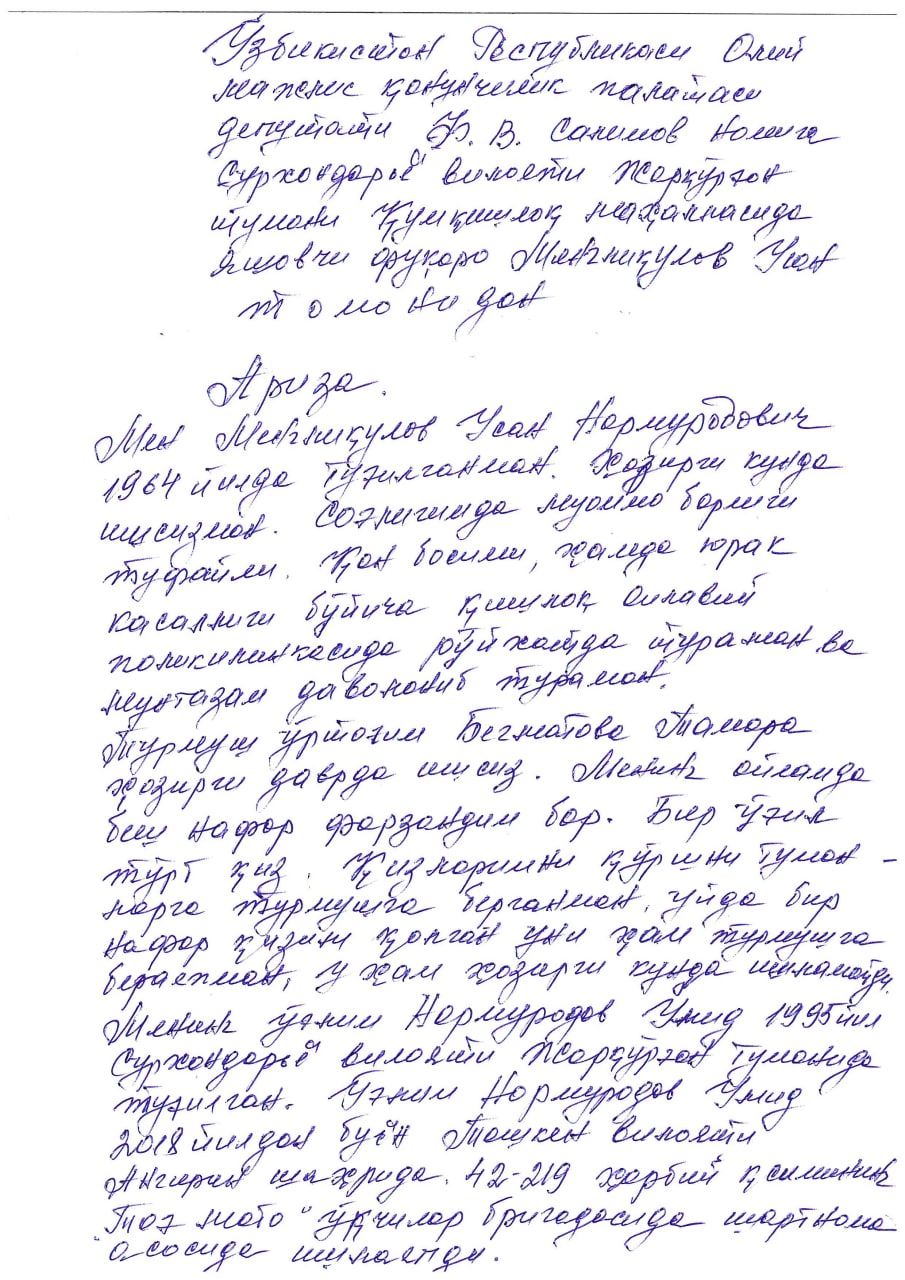 Ўзбикистон Республикаси Олий
мажлис қонунчилик палатаси
депутати Ф. В. Салимов номига
Сурхондарьё вилояти Жарқўрғон
тумани Қумқишлоқ маҳалласида
яшовчи фуқаро Менгниқулов Усан
томонидан
Ариза.
Мен Менгниқулов Усан Нормуродович
1964 йилда туғилганман. Ҳозирги кунда
ишсизман. Соғлигимда муаммо борлиги
туфайли. Қон босими, ҳамда юрак
касаллиги бўйича қишлоқ оилавий
поликилинкасида рўйхатда тураман ва
мунтазам даволониб тураман.
Турмуш ўртоғим Бегматова Тамара
ҳозирги даврда ишсиз. Менинг ойламда
беш нафар фарзандим бор. Бир ўғил
тўрт қиз. Қизларимни қўшни туман-
ларга турмушга берганман, уйда бир
нафар қизим қолган уни ҳам турмушга
бераяпман, у ҳам ҳозирги кунда ишламайди.
Менинг ўғлим Нормуродов Умид 1995 йил
Сурхондарьё вилояти Жарқўрғон туманида
туғилган. Ўғлим Нормуродов Умид
2018 йилдан буён Тошкен вилояти
Ангирин шаҳрида. 42-219 ҳарбий қсимининг
"Тоғ мото" ўқчилар бригадасида шартнома
асосида ишлаяпди.